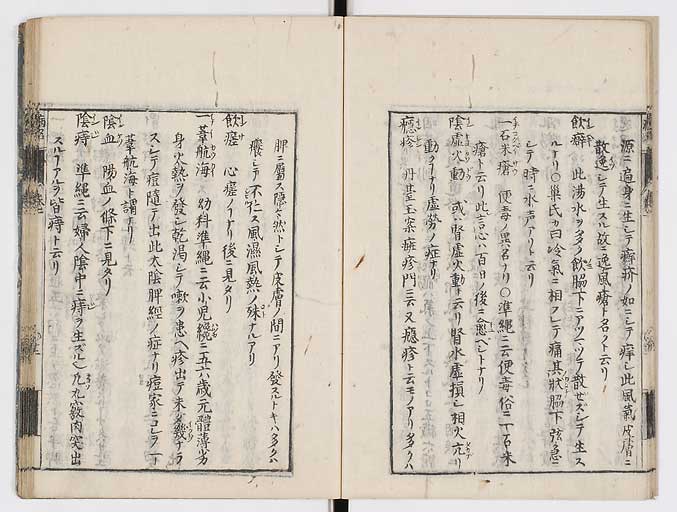 源ニ遍身ニ生シテ癬疥ノ如ニシテ痒シ此風氣皮膚ニ
散逸シテ生スル故ニ逸風瘡ト名クト云リ
飲癖 此湯水ヲ多ク飲脇下ニアツマツテ散ゼズシテ生ス
ルナリ〇巣氏カ曰冷氣ニ相フレテ痛其狀脇下弦急ニ
シテ時ニ水声アリト云リ
一石米瘡 便毒ノ異名ナリ〇準繩ニ云便毒俗ニ一石米
瘡ト云リ此言心ハ百日ノ後ニ愈ヘシトナリ
陰虚火動 或ハ腎虚火動ト云リ腎水虚損シ相火亢リ
動クナリ虚勞ノ症ナリ
癮疹 丹䑓玉案癍疹門ニ云又癮疹ト云モノアリ多クハ
脾ニ屬ス隱々然トシテ皮膚ノ間ニアリ發スルトキハ多クハ
癢シテ不仁ス風濕風熱ノ殊ナルアリ
飲瘧 心瘧ノ下ナリ後ニ見タリ
一葦航海 幼科準繩ニ云小児纔ニ五六歲元體薄劣
身火熱ヲ發シ乾渇シテ嗽ヲ患ヘ疹出テ未タ幾ナラ
スシテ痘隨テ出此太陰脾經ノ症ナリ痘家ニコレヲ一
葦航海ト謂ナリ
陰血 陽血ノ條下ニ見タリ
陰痔 準繩ニ云婦人陰中ニ痔ヲ生ズル丶九九竅肉突出
スルアルヲ皆痔ト云リ